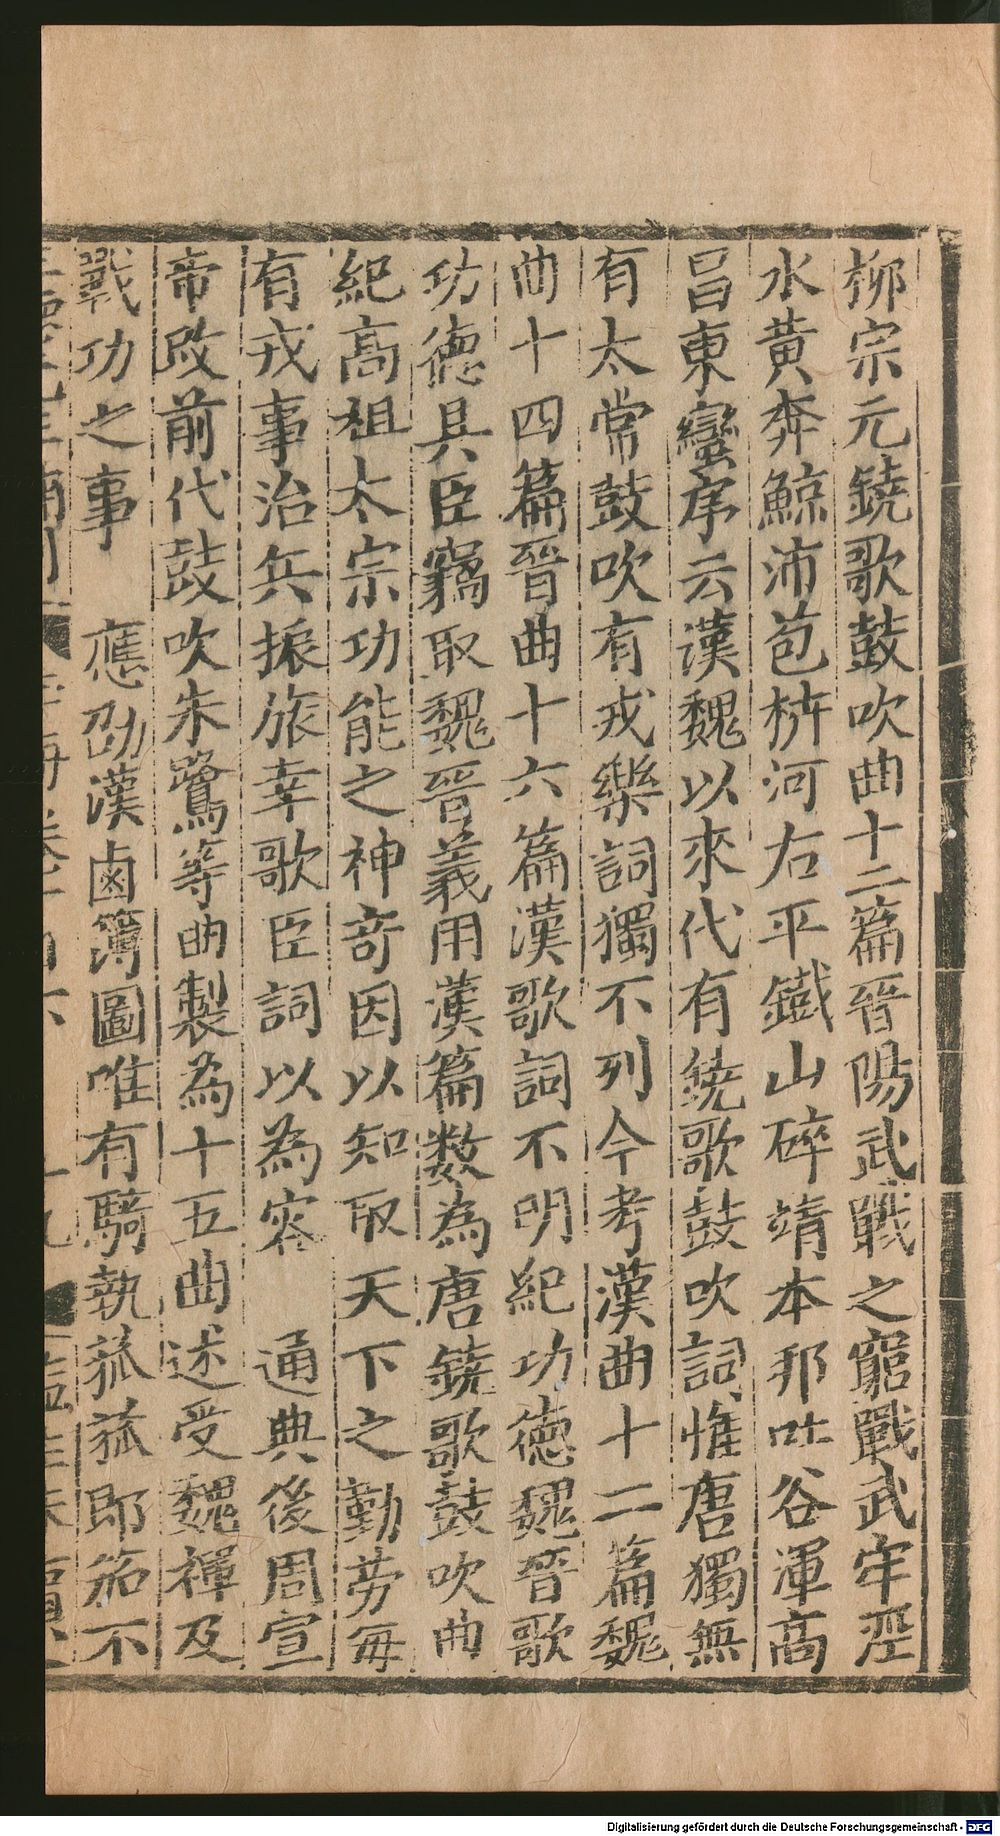 柳宗元鐃歌鼓吹曲十二篇晉陽武戰之窮戰武牢涇
水黃奔鯨沛苞枿河右平鐵山碎靖本邦吐谷渾高
昌東蠻序云漢魏以來代有鐃歌鼓吹詞惟唐獨無
有太常鼓吹有戎樂詞獨不列今考漢曲十二篇魏
曲十四篇晉曲十六篇漢歌詞不明紀功德魏晉歌
功德具臣竊取魏晉義用漢篇數為唐鐃歌鼓吹曲
紀高祖太宗功能之神奇因以知取天下之勤勞每
有戎事治兵振旅幸歌臣詞以為容　通典後周宣
帝改前代鼓吹朱鷺等曲製為十五曲述受魏禪及
戰功之事　應劭漢鹵簿圖唯有騎執菰菰即笳不
Digitalisierung gefördert durch die Deutsche Forschungsgemeinschaft - DFG